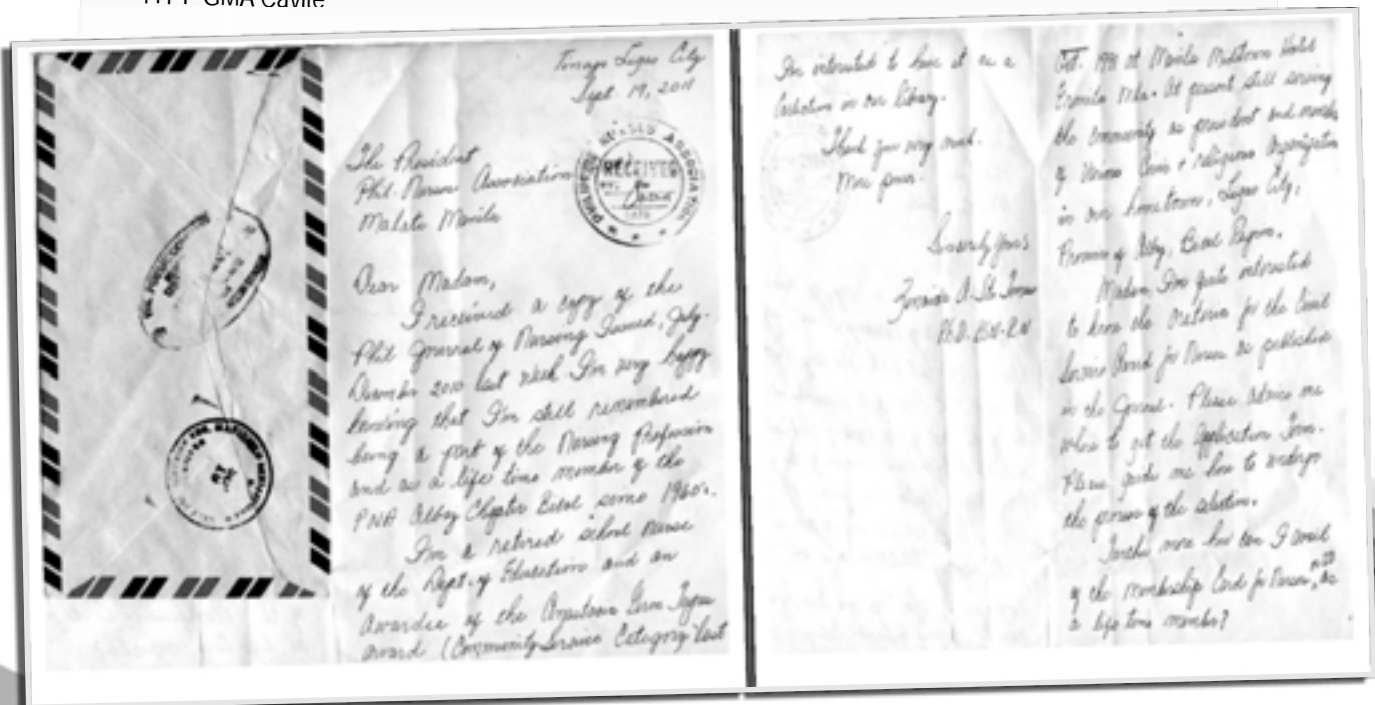 GMA Cavite
Sept. 19, 2011
The President
Phil. Nurses Association
Malate Manila
RECEIVED
Dear Madam,
I received a copy of the
Phil Journal of Nursing Issued, July-
December 2010 last week. I'm very happy
knowing that I'm still remembered
being a part of the Nursing Profession
and as a life time member of the
PNA Albay Chapter Bicol since 1960's.
I'm a retired school nurse
of the Dept. of Education and an
Awardee of the Anastacia Giron Tupas
award (Community Service Category last
Oct. 1991 at Manila Midtown Hotel
Ermita Mla. At present still serving
the community as president and member
of Various Civic & religious Organization
in our hometown, Ligao City,
Province of Albay, Bicol Region.
Madam, I'm quite interested
to know the criteria for the
Service Award for Nurses as published
in the Journal. Please advice me
where to get the Application Form.
Please guide me how to undergo
the process of the selection.
more how can I avail
of the Membership Card for Nurses, as
a life time member?
I'm interested to have it as a
Collection in our library.
Thank you very much.
More power.
Sincerely yours